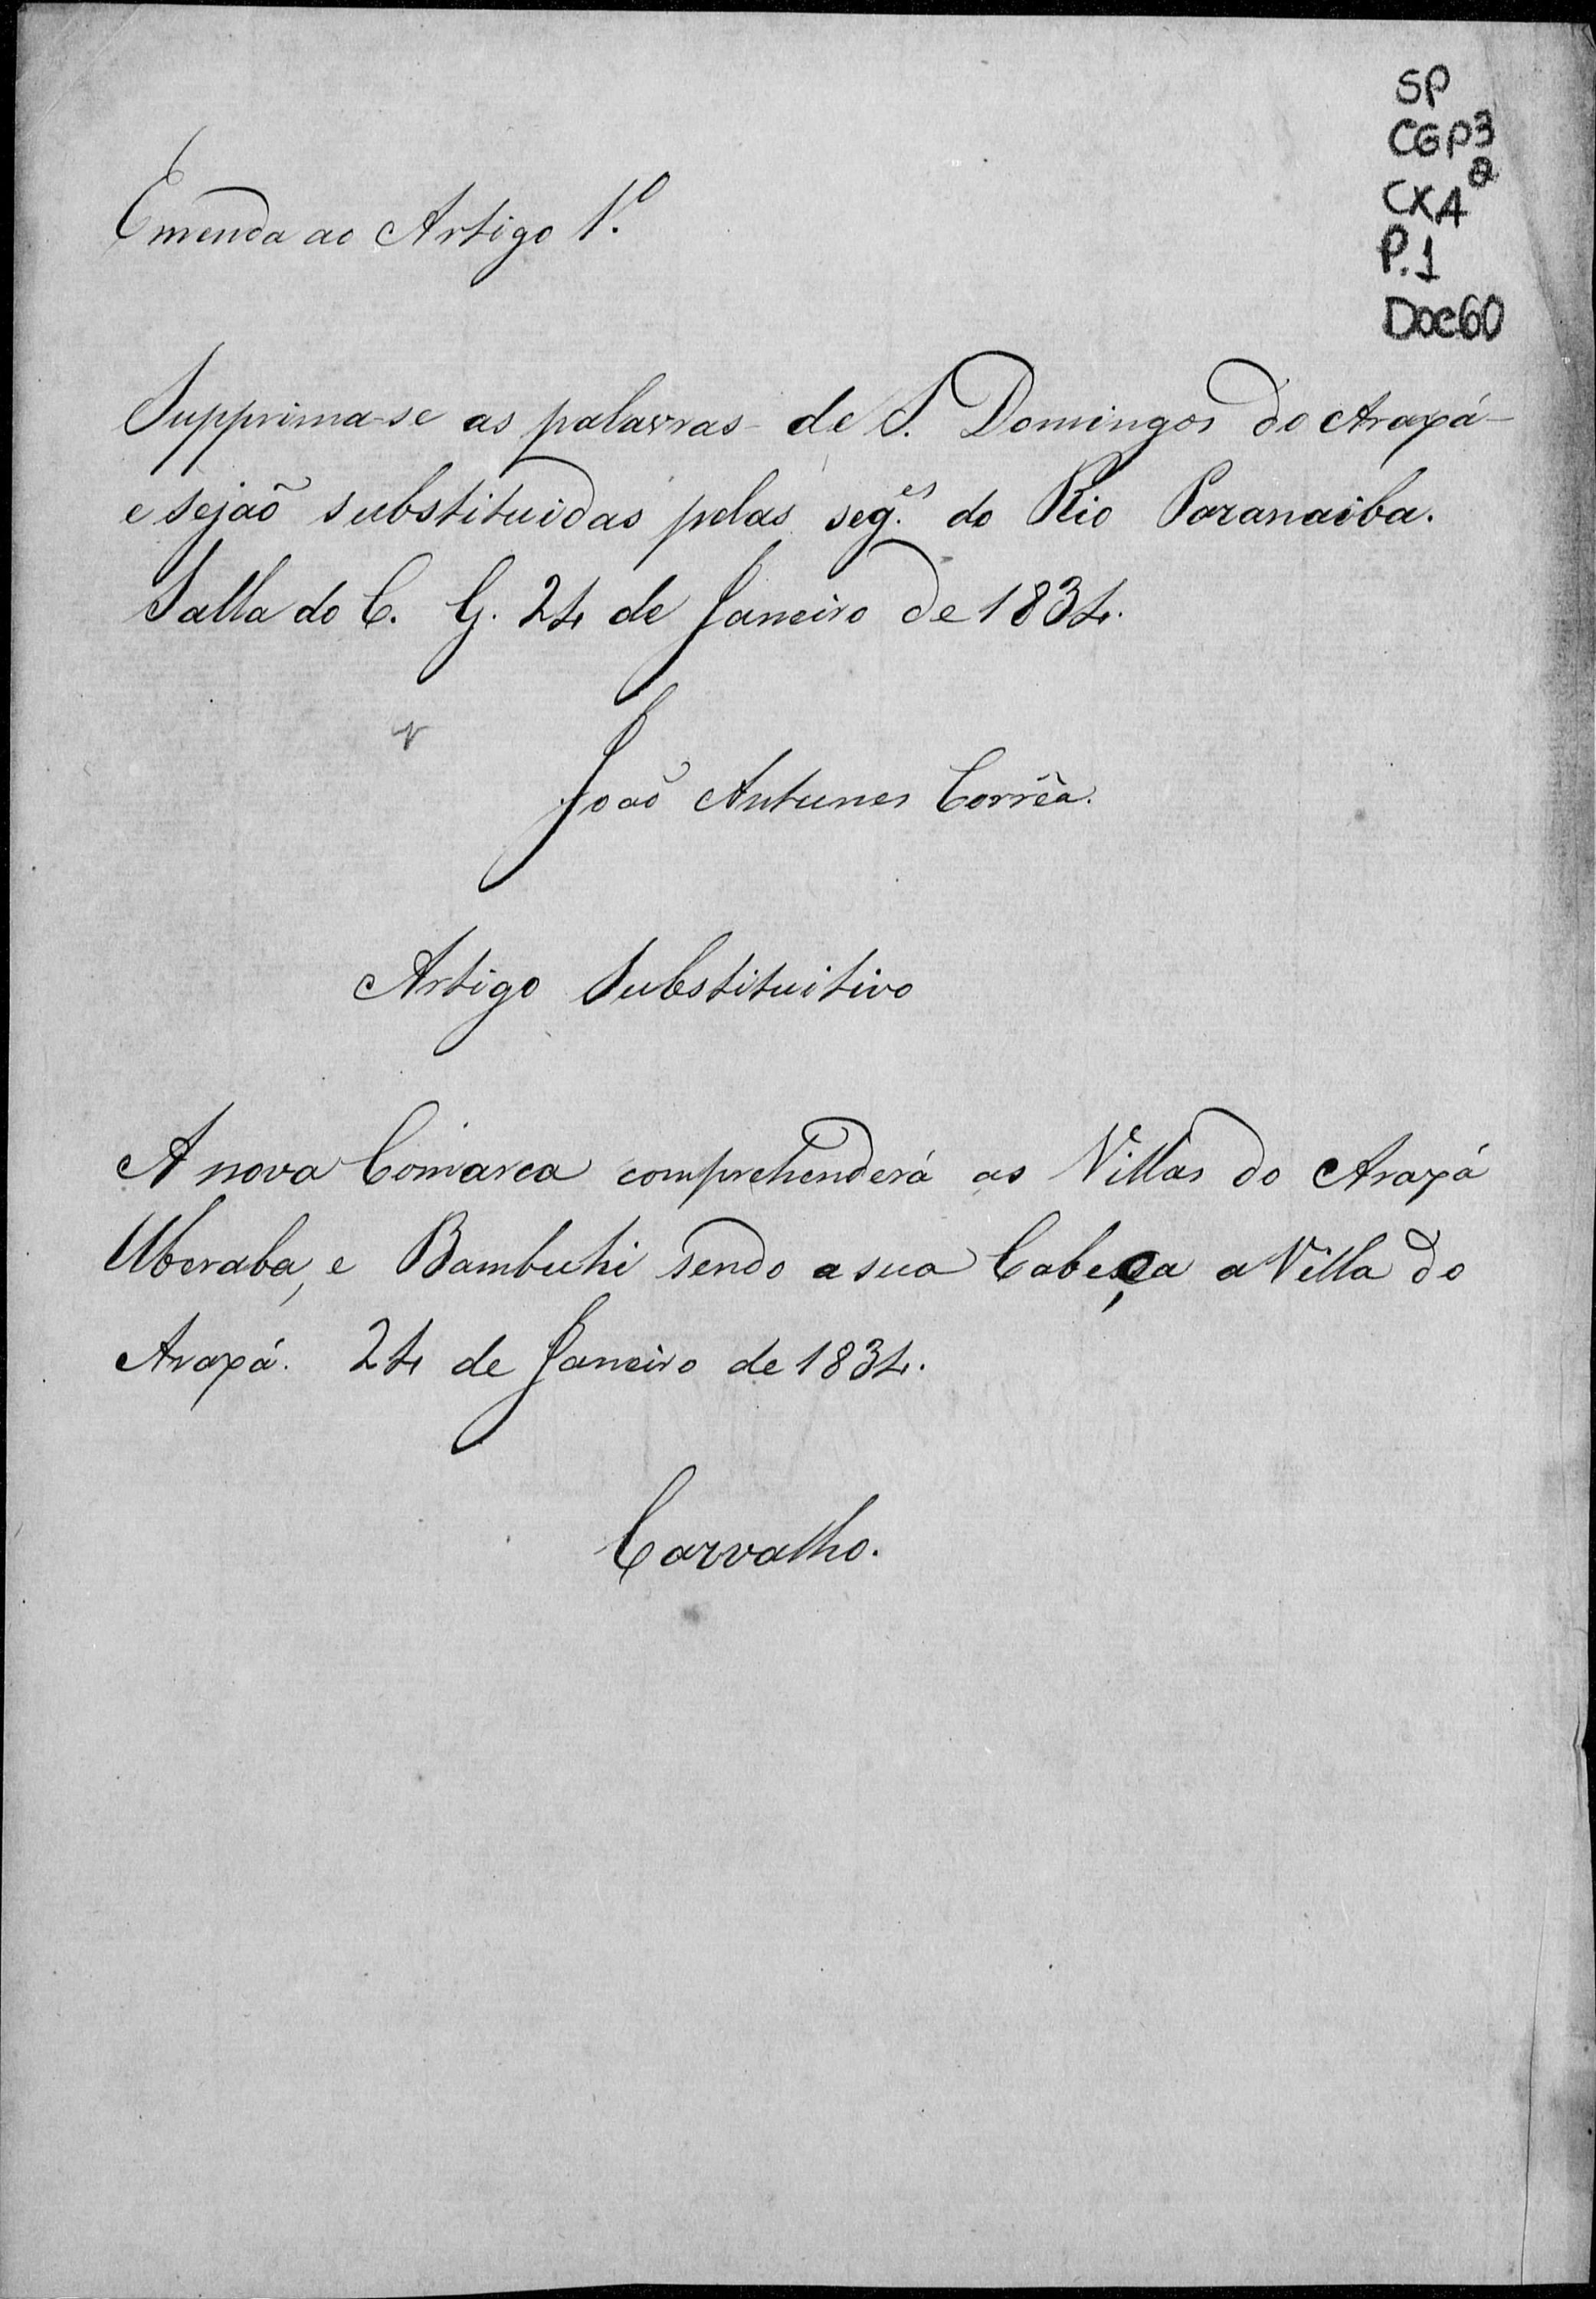 SP
CGP3
CX4ª
P.1
Doc60
Emenda ao Artigo 1.º
Supprima-se as palavras - de S. Domingos do Araxá -
e sejaõ substituidas pelas seg.es do Rio Paranaiba.
Salla do C. G. 24 de Janeiro de 1834.
Joaõ Antunes Corrêa.
Artigo Substituitivo
A nova Comarca comprehenderá as Villas do Araxá
Uberaba, e Bambuhi sendo a sua Cabeça a Villa do
Araxá. 24 de Janeiro de 1834.
Carvalho.